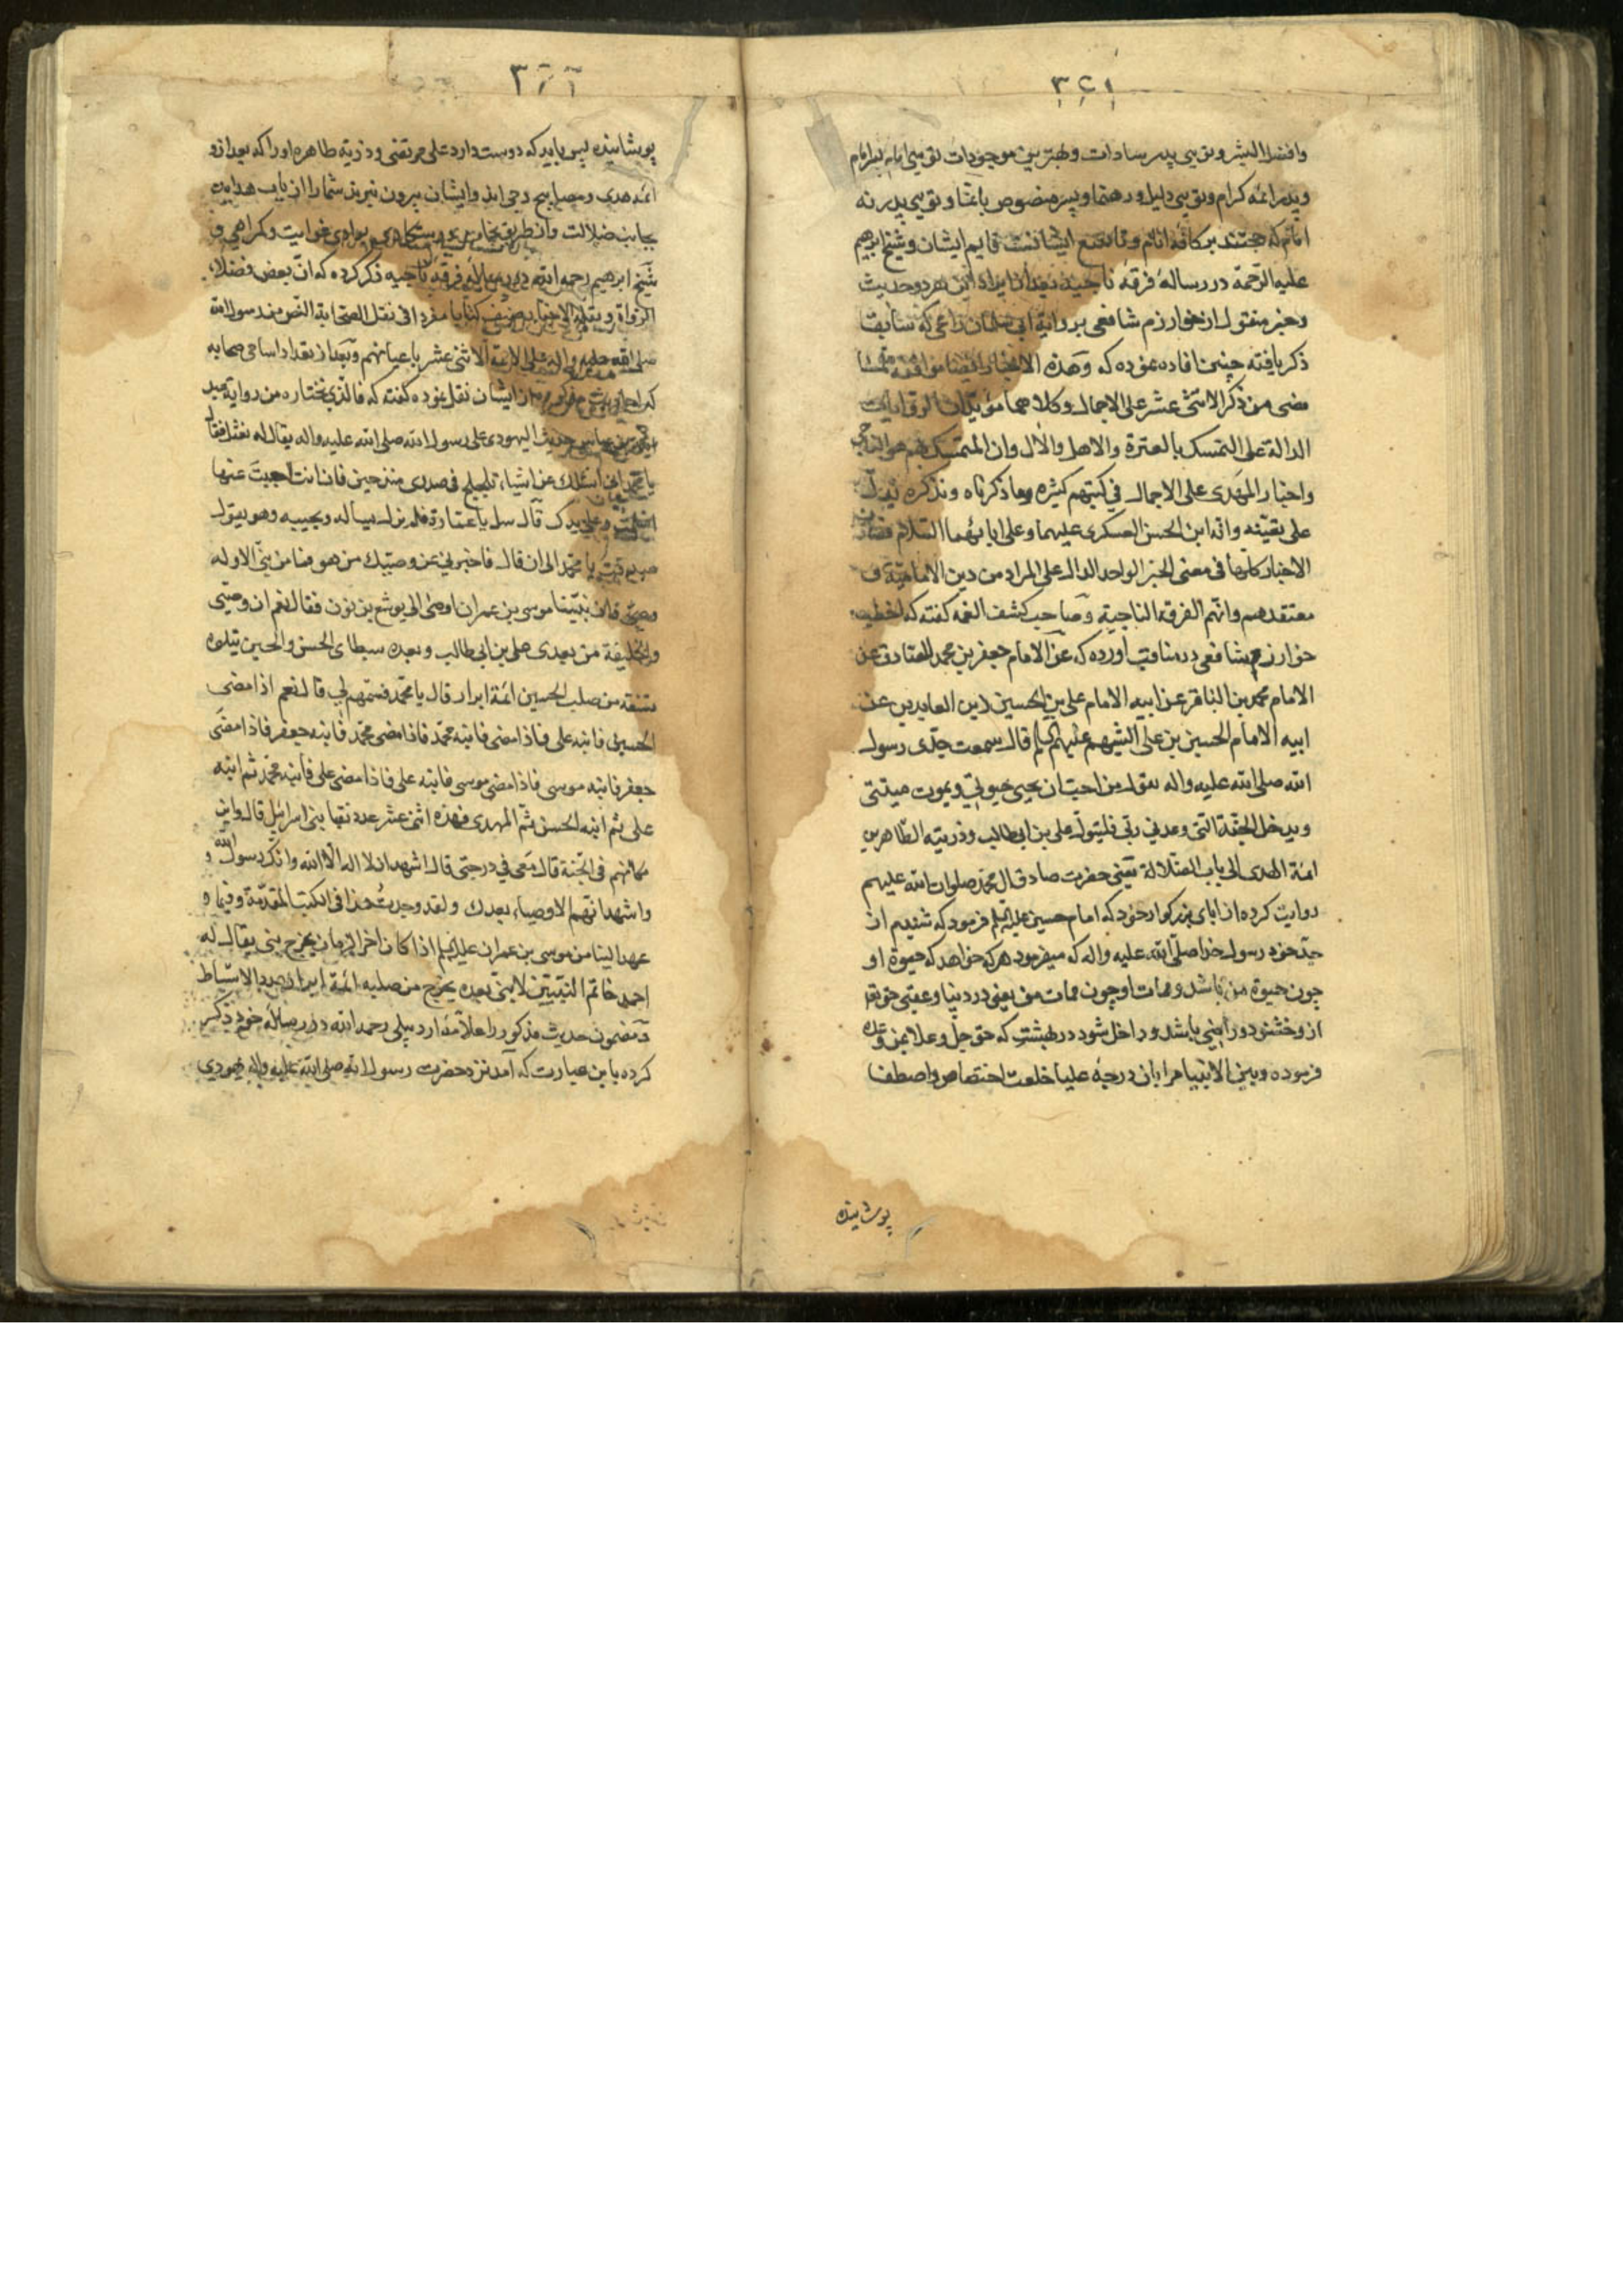 ۳۲۱
وافضل البشر وتویی پدر سادات وبهترین موجودات تویی امام پسر امام
وپدر ائمه کرام وتویی دلیل ورهنما وپسر منصوص باغنا وتویی پدر نه
امام که حجتند بر کافه انام وتاسع ایشانست قایم ایشان وشیخ ابرهیم
علیه الرحمة در رسالۀ فرقۀ ناجیه بعد از ایراد این هر دو حدیث
وخبر منقول از خوارزم شافعی بروایة ابی سلمان راعی که سابقا
ذکر یافته چنین افاده نموده که وهذه الاخبار ایضا موافقه
مضی من ذکر الاثنی عشر علی الاجمال وکلاهما مؤیدان الروایات
الدالة علی التمسک بالعترة والاهل والآل وان المتمسک بهم هو الناجی
واخبار المهدی علی الاجمال فی کتبهم کثیره وما ذکرناه ونذکره یدل
علی یقینه وانه ابن الحسن العسکری علیهما وعلی ابائهما السلام فصار
الاخبار کلها فی معنی الخبر الواحد الدال علی المراد من دین الامامیة و
معتقدهم وانهم الفرقة الناجیة وصاحب کشف الغمه گفته که اخطب
خوارزم شافعی در مناقب آورده که عن الامام جعفر بن محمد الصادق عن
الامام محمد بن الباقر عن ابیه الامام علی بن الحسین زین العابدین عن
ابیه الامام الحسین بن علی الشهید علیهم السلم قال سمعت جدی رسول
الله صلی الله علیه واله یقول من احب ان یحیی حیوتی ویموت میتتی
ویدخل الجنة التی وعدنی ربی فلیتول علی بن ابی طالب وذریته الطاهرین
ائمة الهدی الی باب الضلالة یعنی حضرت صادق ال محمد صلوات الله علیهم
روایت کرده از ابای بزرگوار خود که امام حسین علیه السلم فرمود که شنیدم از
جد خود رسول خدا صلی الله علیه واله که میفرمود هر که خواهد که حیوة او
چون حیوة من باشد وممات او چون ممات من یعنی در دنیا وعقبی حق تعا
ازو خشنود وراضی باشد وداخل شود در بهشتی که حق جل وعلا بمن وعده
فرموده وبین الانبیا مرا بان درجۀ علیا خلعت اختصاص واصطفا
پوشانیده
۳۲۲
پوشانیده پس باید که دوست دارد علی مرتضی وذریة طاهره او را که بعد ازو
ائمه هدی ومصابیح دجی اند وایشان بیرون نبرند شما را از باب هدایت
بجانب ضلالت واز طریق بوادی غوایت وگمراهی و
شیخ ابرهیم رحمه الله در رسالۀ فرقه ناجیه ذکر کرده که ان بعض فضلاء
الرواة ونقلة الاخبار صنف کتابا مفردا فی نقل الصحابة النص من رسول الله
صلی الله علیه واله علی الائمة الاثنی عشر باعیانهم وبعد از تعداد اسامی صحابه
که از ایشان نقل نموده گفته که فالذی نختاره من روایة عبد
الله بن عباس حدیث الیهودی علی رسول الله صلی الله علیه واله یقال له نعثل فقال
یا محمد انی اسئلک عن اشیاء تلجلج فی صدری منذ حین فان انت اجبت عنها
اسلمت علی یدک قال سل یا با عمارة فلم یزل یساله ویجیبه وهو یقول
صدقت یا محمد الی ان قال فاخبرنی عن وصیک من هو فما من نبی الا وله
وصی فان نبینا موسی بن عمران اوصی الی یوشع بن نون فقال نعم ان وصیی
والخلیفة من بعدی علی بن ابی طالب وبعده سبطای الحسن والحسین یتلوه
تسعة من صلب الحسین ائمة ابرار قال یا محمد فسمهم لی قال نعم اذا مضی
الحسین فابنه علی فاذا مضی فابنه محمد فاذا مضی محمد فابنه جعفر فاذا مضی
جعفر فابنه موسی فاذا مضی موسی فابنه علی فاذا مضی علی فابنه محمد ثم ابنه
علی ثم ابنه الحسن ثم المهدی فهذه اثنی عشر عدد نقبا بنی اسرائیل قال واین
مکانهم فی الجنة قال معی فی درجتی قال اشهد ان لا اله الا الله وانک رسول الله و
واشهد انهم الاوصیاء بعدک ولقد وجدت هذا فی الکتب المقدمة وفیما
عهد الینا من موسی بن عمران علیه السلم اذا کان اخر الزمان یخرج نبی یقال له
احمد خاتم النبیین لا نبی بعده یخرج من صلبه ائمة ابرار بعدد الاسباط
ومضمون حدیث مذکور را علامۀ اردبیلی رحمه الله در رساله خود ذکر
کرده باین عبارت که آمد نزد حضرت رسول الله صلی الله علیه واله یهودی